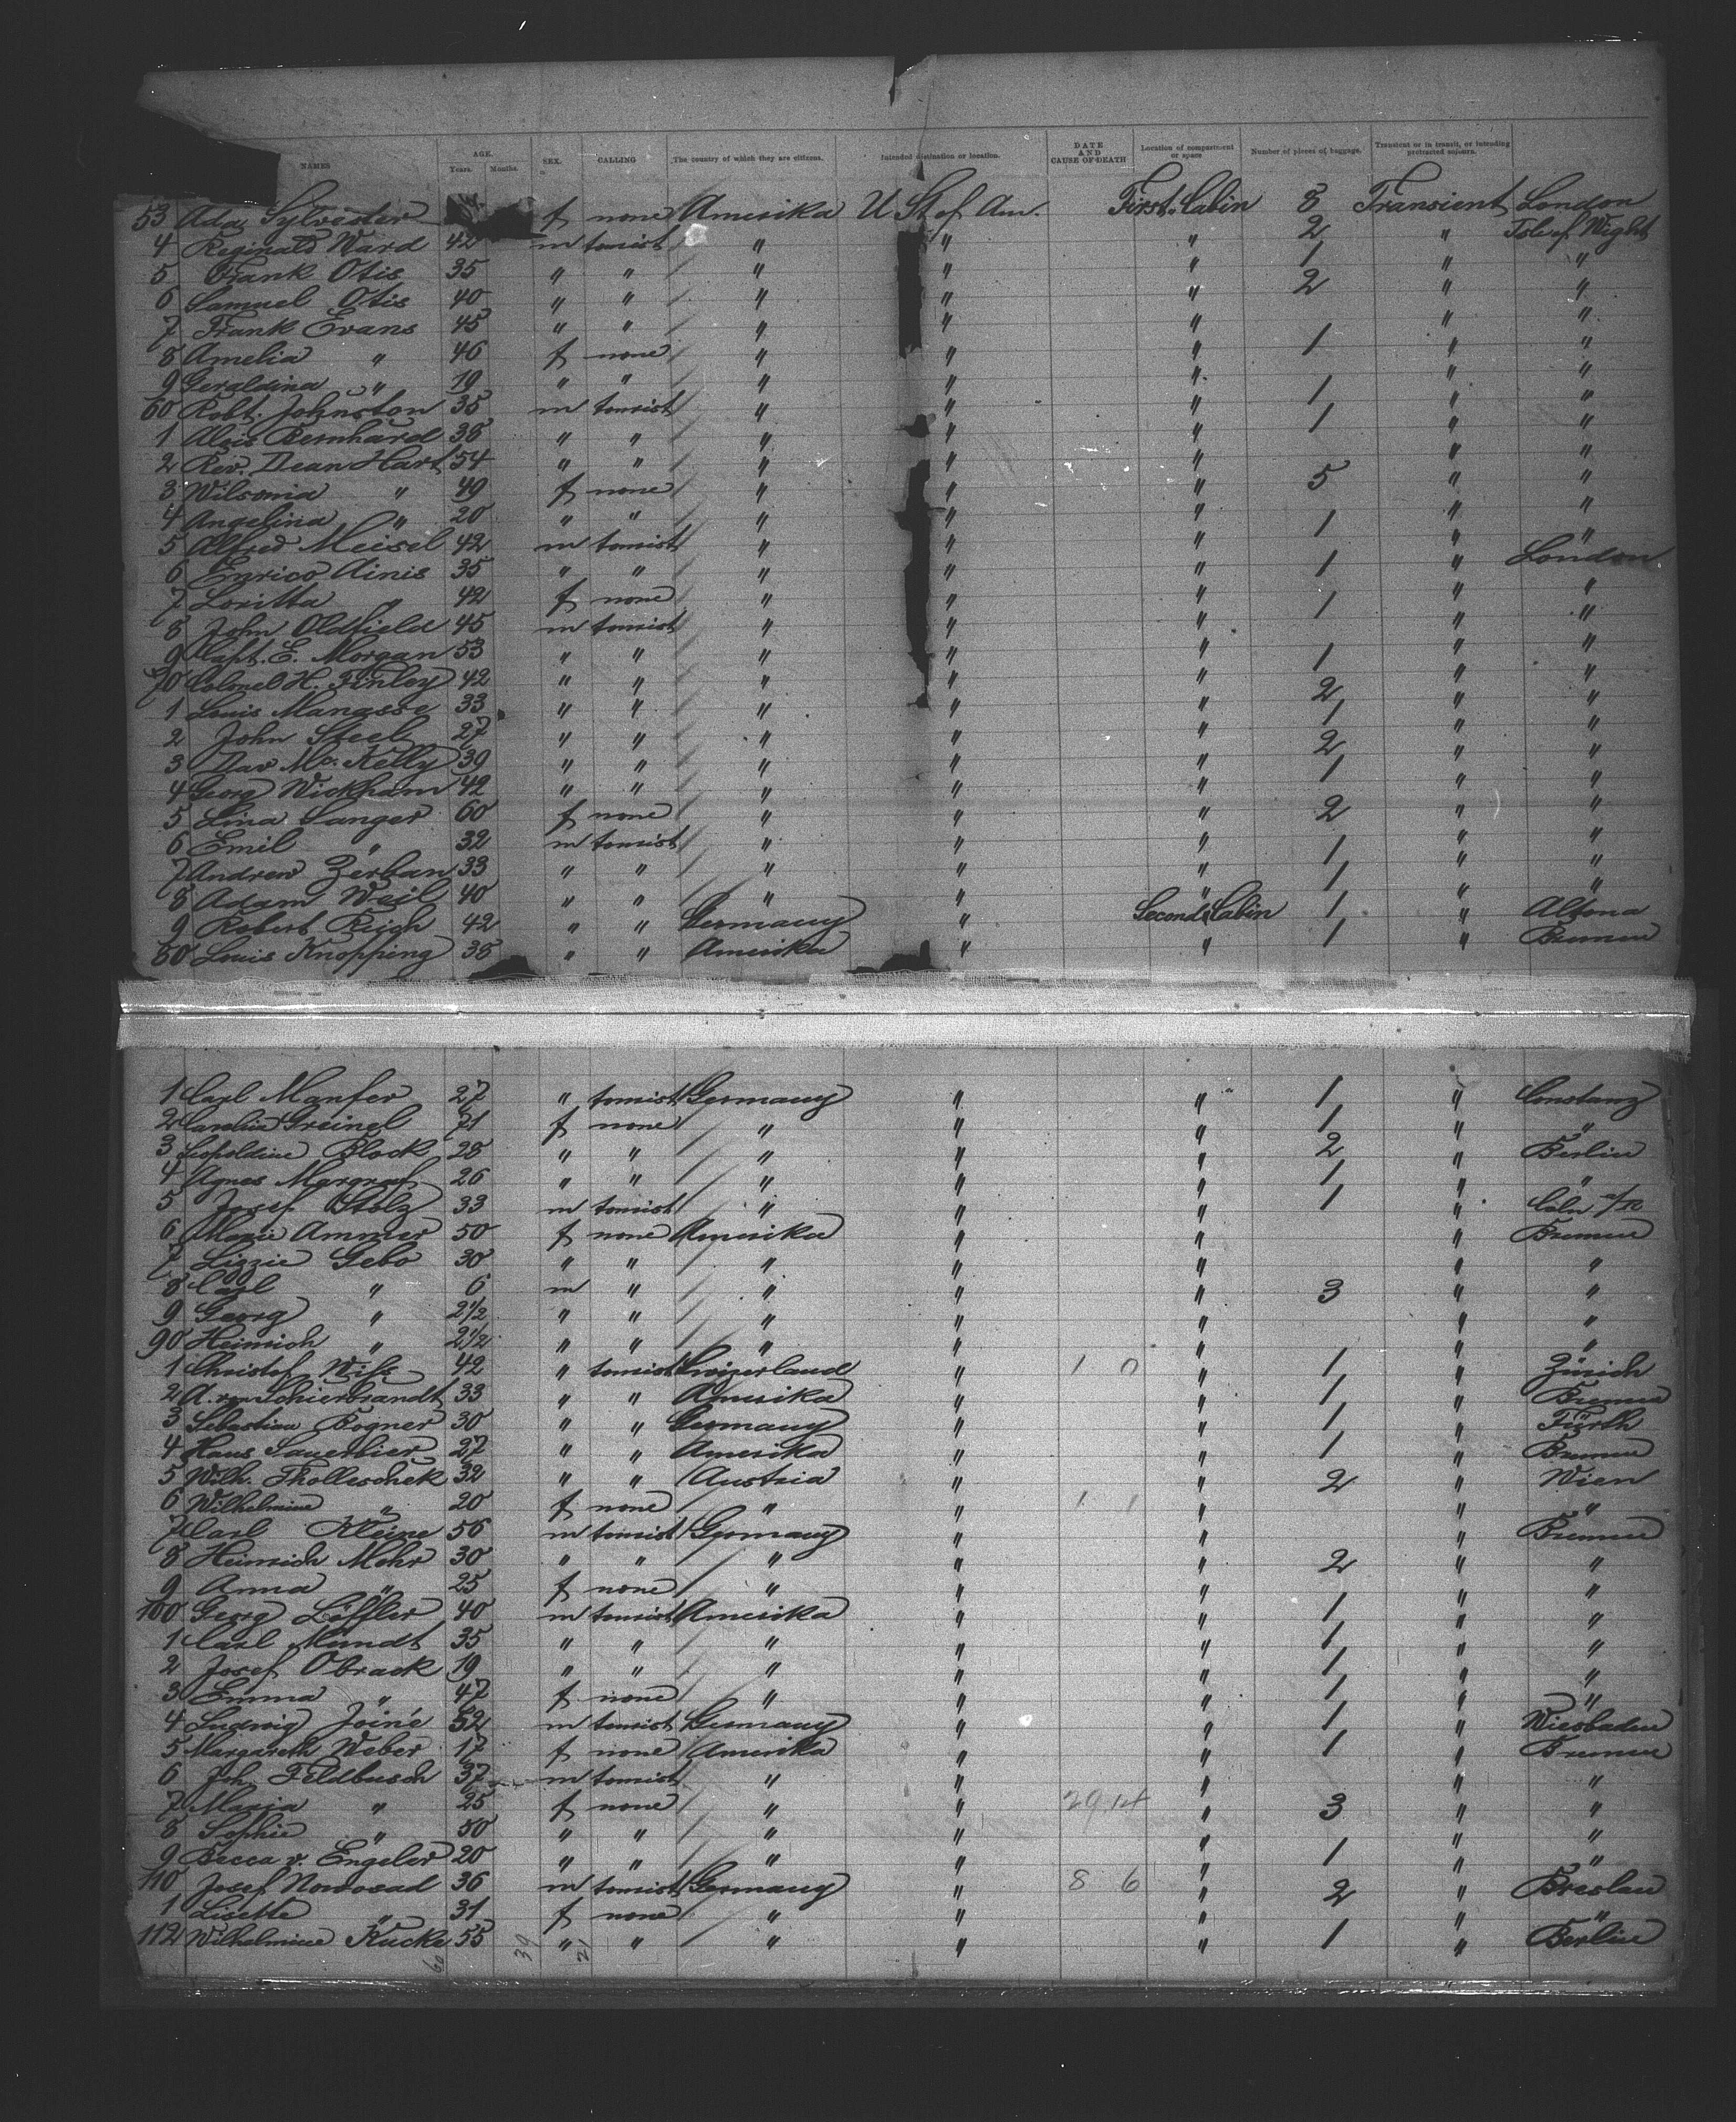 NAMES AGE. Years. Months. SEX. CALLING The country of which they are citizens. Intended destination or location. DATE AND CAUSE OF DEATH Location of compartment or space Number of pieces of baggage. Transient or in transit, or intending protracted sojourn.
53 Ada Sylvester f none Amerika U St of Am. First Cabin 8 Transient London
4 Reginald Ward 42 m tourist " " " 2 " Isle of Wight
5 Frank Otis 35 " " " " " 1 " "
6 Samuel Otis 40 " " " " " 2 " "
7 Frank Evans 45 " " " " " " "
8 Amelia " 46 f none " " " 1 " "
9 Geraldina " 19 " " " " " " "
60 Robt. Johnston 35 m tourist " " " 1 " "
1 Alois Bernhard 38 " " " " " 1 " "
2 Rev. Dean Hart 54 " " " " " " "
3 Wilsonia " 49 f none " " " 5 " "
4 Angelina " 20 " " " " " " "
5 Alfred Meisel 42 m tourist " " " 1 " "
6 Enrico Ainis 35 " " " " " 1 " London
7 Loritta " 42 f none " " " " "
8 John Oldfield 45 m tourist " " " 1 " "
9 Capt. E. Morgan 53 " " " " " 1 " "
70 Colonel H. Finley 42 " " " " " 2 " "
1 Louis Manasse 33 " " " " " 1 " "
2 John Steel 27 " " " " " 2 " "
3 Dav Mc. Kelly 39 " " " " " 1 " "
4 Georg Wickham 42 " " " " " " "
5 Lina Langer 60 f none " " " 2 " "
6 Emil " 32 m tourist " " " " "
7 Andrew Zerban 33 " " " " " 1 " "
8 Adam Weil 40 " " " " " 1 " "
9 Robert Reich 42 " " Germany " Second Cabin 1 " Altona
80 Louis Knopping 38 " " Amerika " " 1 " Bremen
1 Carl Manfer 27 " tourist Germany " " 1 " Constanz
2 Carolina Greinel 71 f none " " " 1 " "
3 Leopoldine Block 28 " " " " " 2 " Berlin
4 Agnes Margraf 26 " " " " " 1 " "
5 Josef Stolz 33 m tourist " " " 1 " Cöln a/R
6 Marie Ammer 50 f none Amerika " " " Bremen
7 Lizzie Gebo 30 " " " " " " "
8 Carl " 6 m " " " " 3 " "
9 Georg " 2 1/2 " " " " " " "
90 Heinrich " 2 1/2 " " " " " " "
1 Christof Wiss 42 " tourist Swizerland " 1 0 " 1 " Zürich
2 A. von Schierbrandt 33 " " Amerika " " 1 " Bremen
3 Sebastian Bogner 30 " " Germany " " 1 " Fürth
4 Hans Sauerbier 27 " " Amerika " " 1 " Bremen
5 Wilh. Tkolleschek 32 " " Austria " " 2 " Wien
6 Wilhelmine " 20 f none " " 1 1 " " "
7 Carl Kleine 56 m tourist Germany " " " Bremen
8 Heinrich Mohr 30 " " " " " 2 " "
9 Anna " 25 f none " " " " "
100 Georg Löffler 40 m tourist Amerika " " 1 " "
1 Carl Mundt 35 " " " " " 1 " "
2 Josef Obrack 19 " " " " " 1 " "
3 Emma " 47 f none " " " 1 " "
4 Ludwig Joiné 52 m tourist Germany " " 1 " Wiesbaden
5 Margareth Weber 17 f none Amerika " " 1 " Bremen
6 Joh. Feldbusch 37 m tourist " " " " "
7 Maria " 25 f none " " 29 14 " 3 " "
8 Sophie " 50 " " " " " " "
9 Becca v. Engeler 20 " " " " " 1 " "
110 Josef Nowosad 36 m tourist Germany " 8 6 " 2 " Breslau
1 Lisette " 31 f none " " " " "
112 Wilhelmine Kucke 55 " " " " " 1 " Berlin
60 39 21